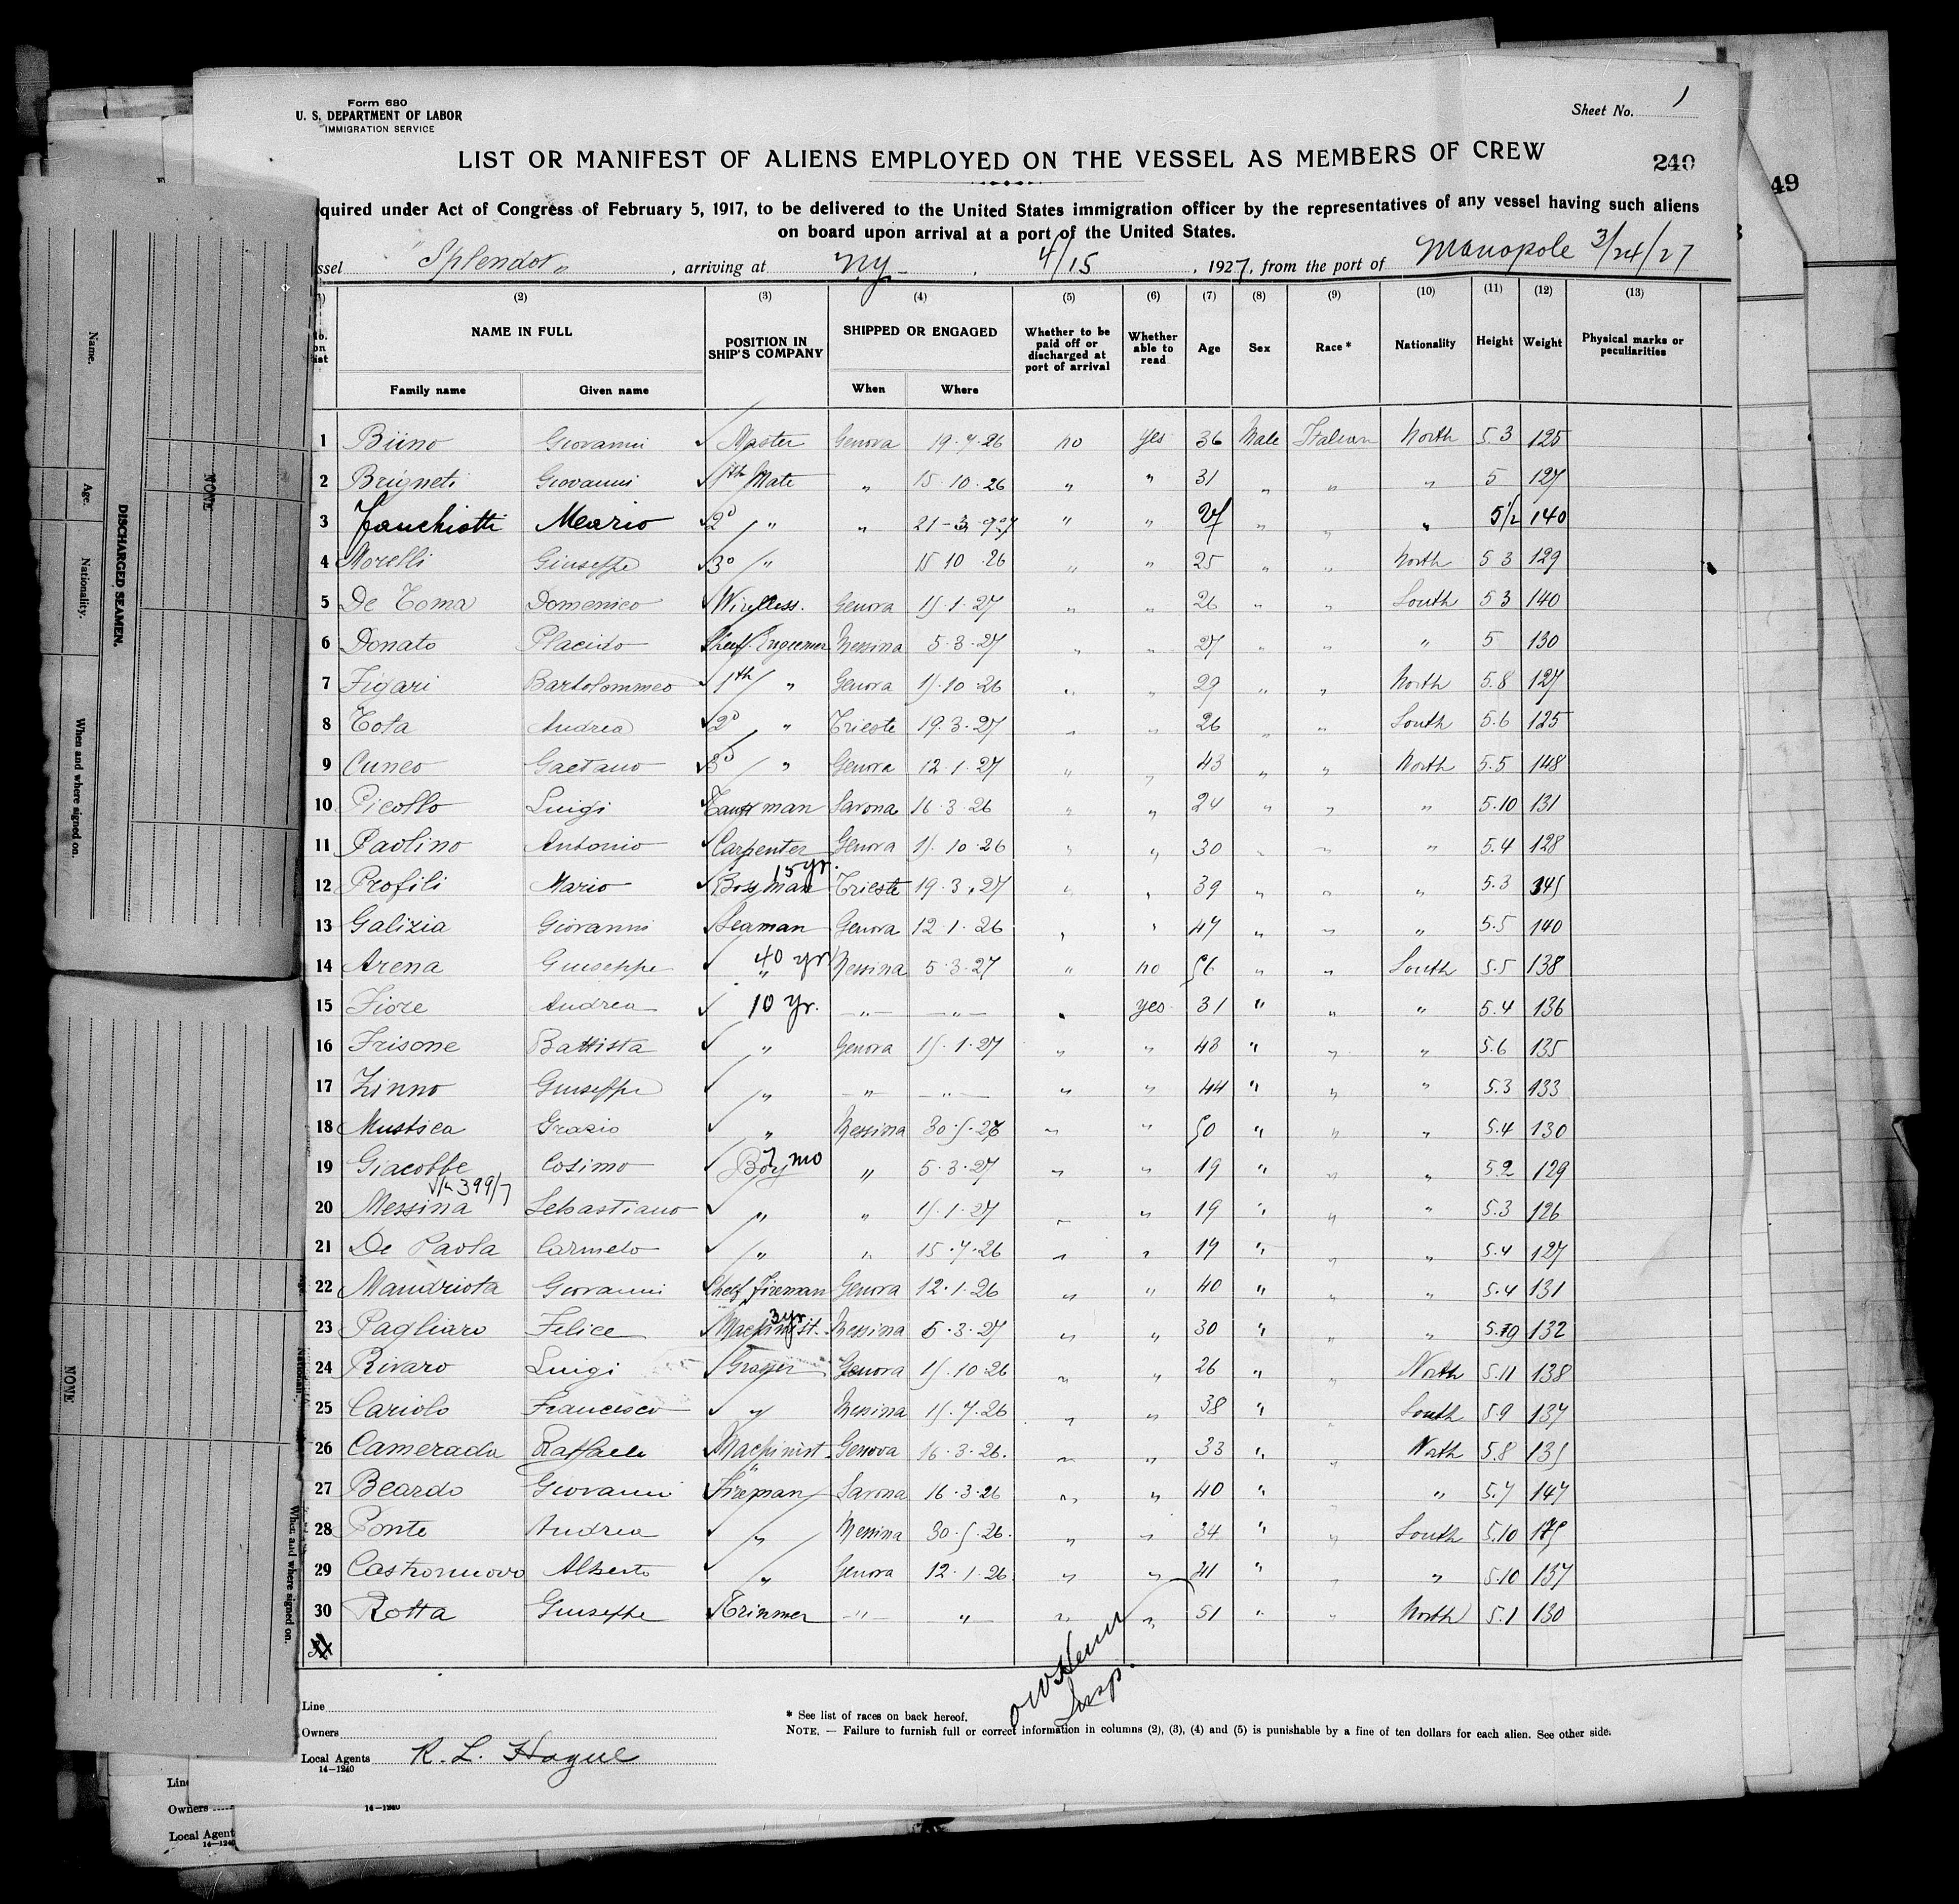 Form 680
U. S. DEPARTMENT OF LABOR
IMMIGRATION SERVICE
Sheet No. 1
LIST OR MANIFEST OF ALIENS EMPLOYED ON THE VESSEL AS MEMBERS OF CREW
240
49
quired under Act of Congress of February 5, 1917, to be delivered to the United States immigration officer by the representatives of any vessel having such aliens
on board upon arrival at a port of the United States.
ssel "Splendor", arriving at N.Y., 4/15, 1927, from the port of Manopole 3/24/27
(2) (3) (4) (5) (6) (7) (8) (9) (10) (11) (12) (13)
No. on list NAME IN FULL Family name Given name POSITION IN SHIP'S COMPANY SHIPPED OR ENGAGED When Where Whether to be paid off or discharged at port of arrival Whether able to read Age Sex Race* Nationality Height Weight Physical marks or peculiarities
1 Giovanni ✓ Master Genova 19.7.26 no yes 36 Male Italian North 5 3 125
2 Brigneti Giovanni ✓ 1th Mate " 15 10 26 " " 31 " " " 5 127
3 Mario ✓ 2d " " " " 27 " " " 5 1/2 140
4 Morelli Giuseppe ✓ 3o " 15 10 26 " " 25 " " North 5 3 129
5 De Toma Domenico ✓ Wireless. Genova 15.1.27 " " 26 " " South 5 3 140
6 Donato Placido Messina 5.3.27 " " 27 " " " 5 130
7 Figari Bartolommeo ✓ 1th " Genova 15.10.26 " " 29 " " North 5.8 127
8 Tota Andrea ✓ 2d " Trieste 19.3.27 " " 26 " " South 5.6 125
9 Cuneo Gaetano ✓ 3d " Genova 12.1.27 " " 43 " " North 5.5 148
10 Picollo Luigi ✓ man Savona 16.3.26 " " 24 " " " 5.10 131
11 Paolino Antonio ✓ Carpenter Genova 15.10.26 " " 30 " " " 5.4 128
15 yr.
12 Profili Mario ✓ Bossman Trieste 19.3.27 " " 39 " " " 5.3 145
13 Galizia Giovanni ✓ Seaman Genova 12.1.26 " " 47 " " " 5.5 140
14 Arena Giuseppe ✓ " 40 yr Messina 5.3.27 " no 56 " " South 5.5 138
15 Fiore Andrea ✓ 10 yr. " " " yes 31 " " " 5.4 136
16 Frisone Battista ✓ " Genova 15.1.27 " " 43 " " " 5.6 135
17 Zinno Giuseppe ✓ " " " " " 44 " " " 5.3 133
18 Mustica Grazio ✓ " Messina 30.5.26 " " 50 " " " 5.4 130
19 Giacobbe Cosimo ✓ Boy 7 mo " 5.3.27 " " 19 " " " 5.2 129
399/7
20 Messina Sebastiano ✓ " " 15.1.27 " " 19 " " " 5.3 126
21 De Paola Carmelo ✓ " " 15.7.26 " " 19 " " " 5.4 127
22 Mandriota Giovanni Chef Fireman Genova 12.1.26 " " 40 " " " 5.4 131
3 yr
23 Pagliaro Felice ✓ Machinist. Messina 5.3.27 " " 30 " " " 5.9 132
24 Rivaro Luigi ✓ Genova 15.10.26 " " 26 " " North 5.11 138
25 Cariolo Francesco ✓ " Messina 15.7.26 " " 38 " " South 5.9 137
26 Camerada Raffaele ✓ Machinist Genova 16.3.26. " " 33 " " North 5.8 135
27 Beardo Giovanni ✓ Fireman Savona 16.3.26 " " 40 " " " 5.7 147
28 Ponte Andrea ✓ " Messina 30.5.26. " " 34 " " South 5.10 175
29 Castronuovo Alberto ✓ " Genova 12.1.26. " " 41 " " " 5.10 137
30 Rotta Giuseppe ✓ Trimmer " " " " 51 " " North 5.1 130
Insp.
Line
Owners
Local Agents R. L. Hague
14—1240
* See list of races on back hereof.
NOTE. — Failure to furnish full or correct information in columns (2), (3), (4) and (5) is punishable by a fine of ten dollars for each alien. See other side.
Name.
Age.
Nationality.
When and where signed on.
DISCHARGED SEAMEN.
NONE
NONE
When and where signed on.
Line
Owners
14—1240
Local Agent
14—1240